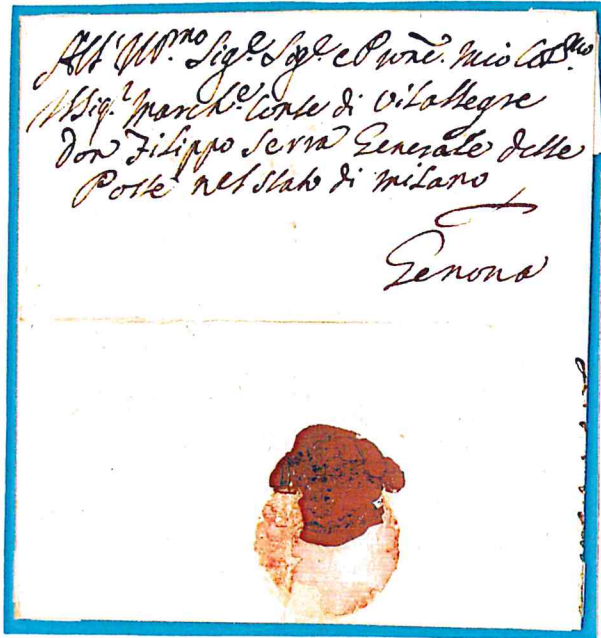 All' Ill.mo Sig.e Sig.e e Prone. mio Col.mo
Il Sig.r March.e Conte di Villallegre
Don Filippo Serra Generale delle
Poste nel Stato di Milano
Genova